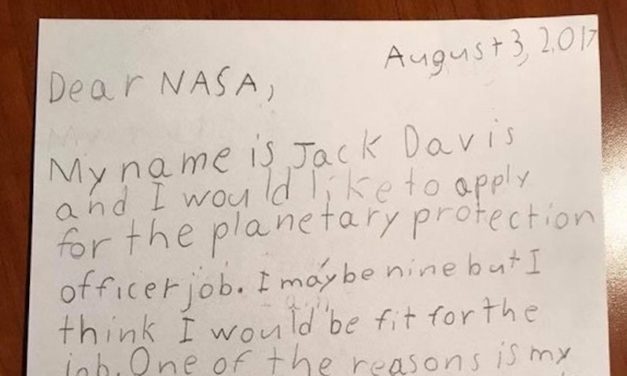 August 3, 2017
Dear NASA,
My name is Jack Davis
and I would like to apply
for the planetary protection
officer job. I may be nine but I
think I would be fit for the
job. One of the reasons is my